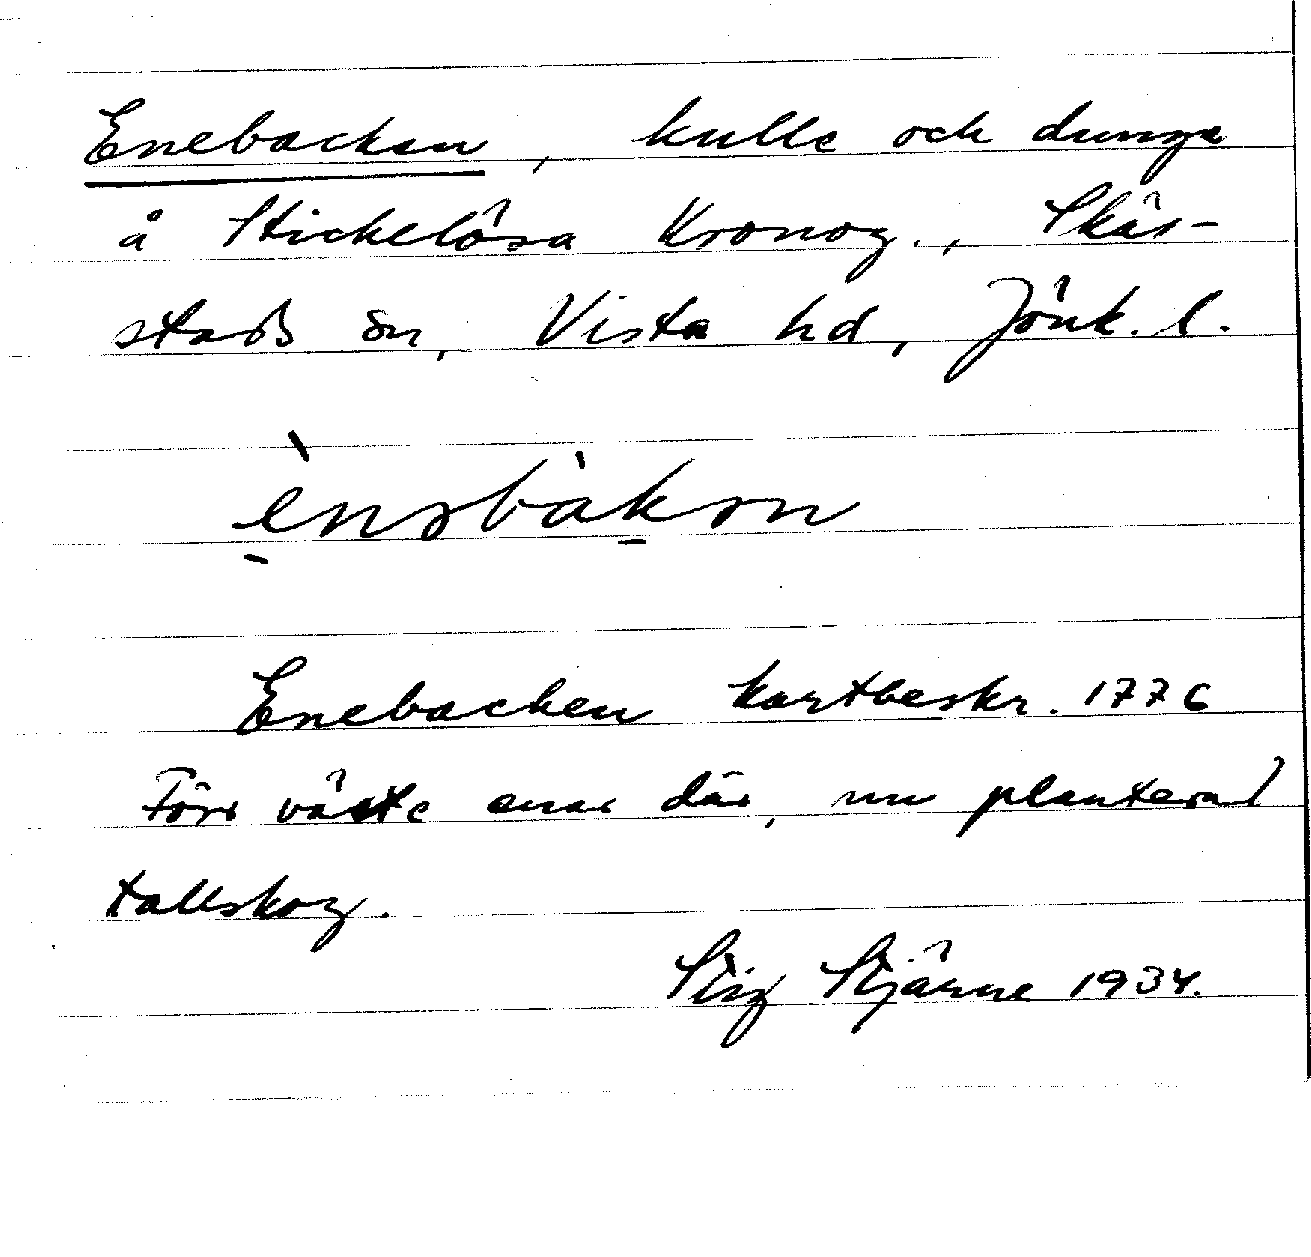 Enebacken, kulle och dunge
å Stickelösa Kronog., Skär-
stads sn, Vista hd, Jönk. l.
ènəbàkən
Enebacken kartbeskr. 1776
Förr växte enar där, nu planterad
tallskog.
Stig Stjärne 1934.